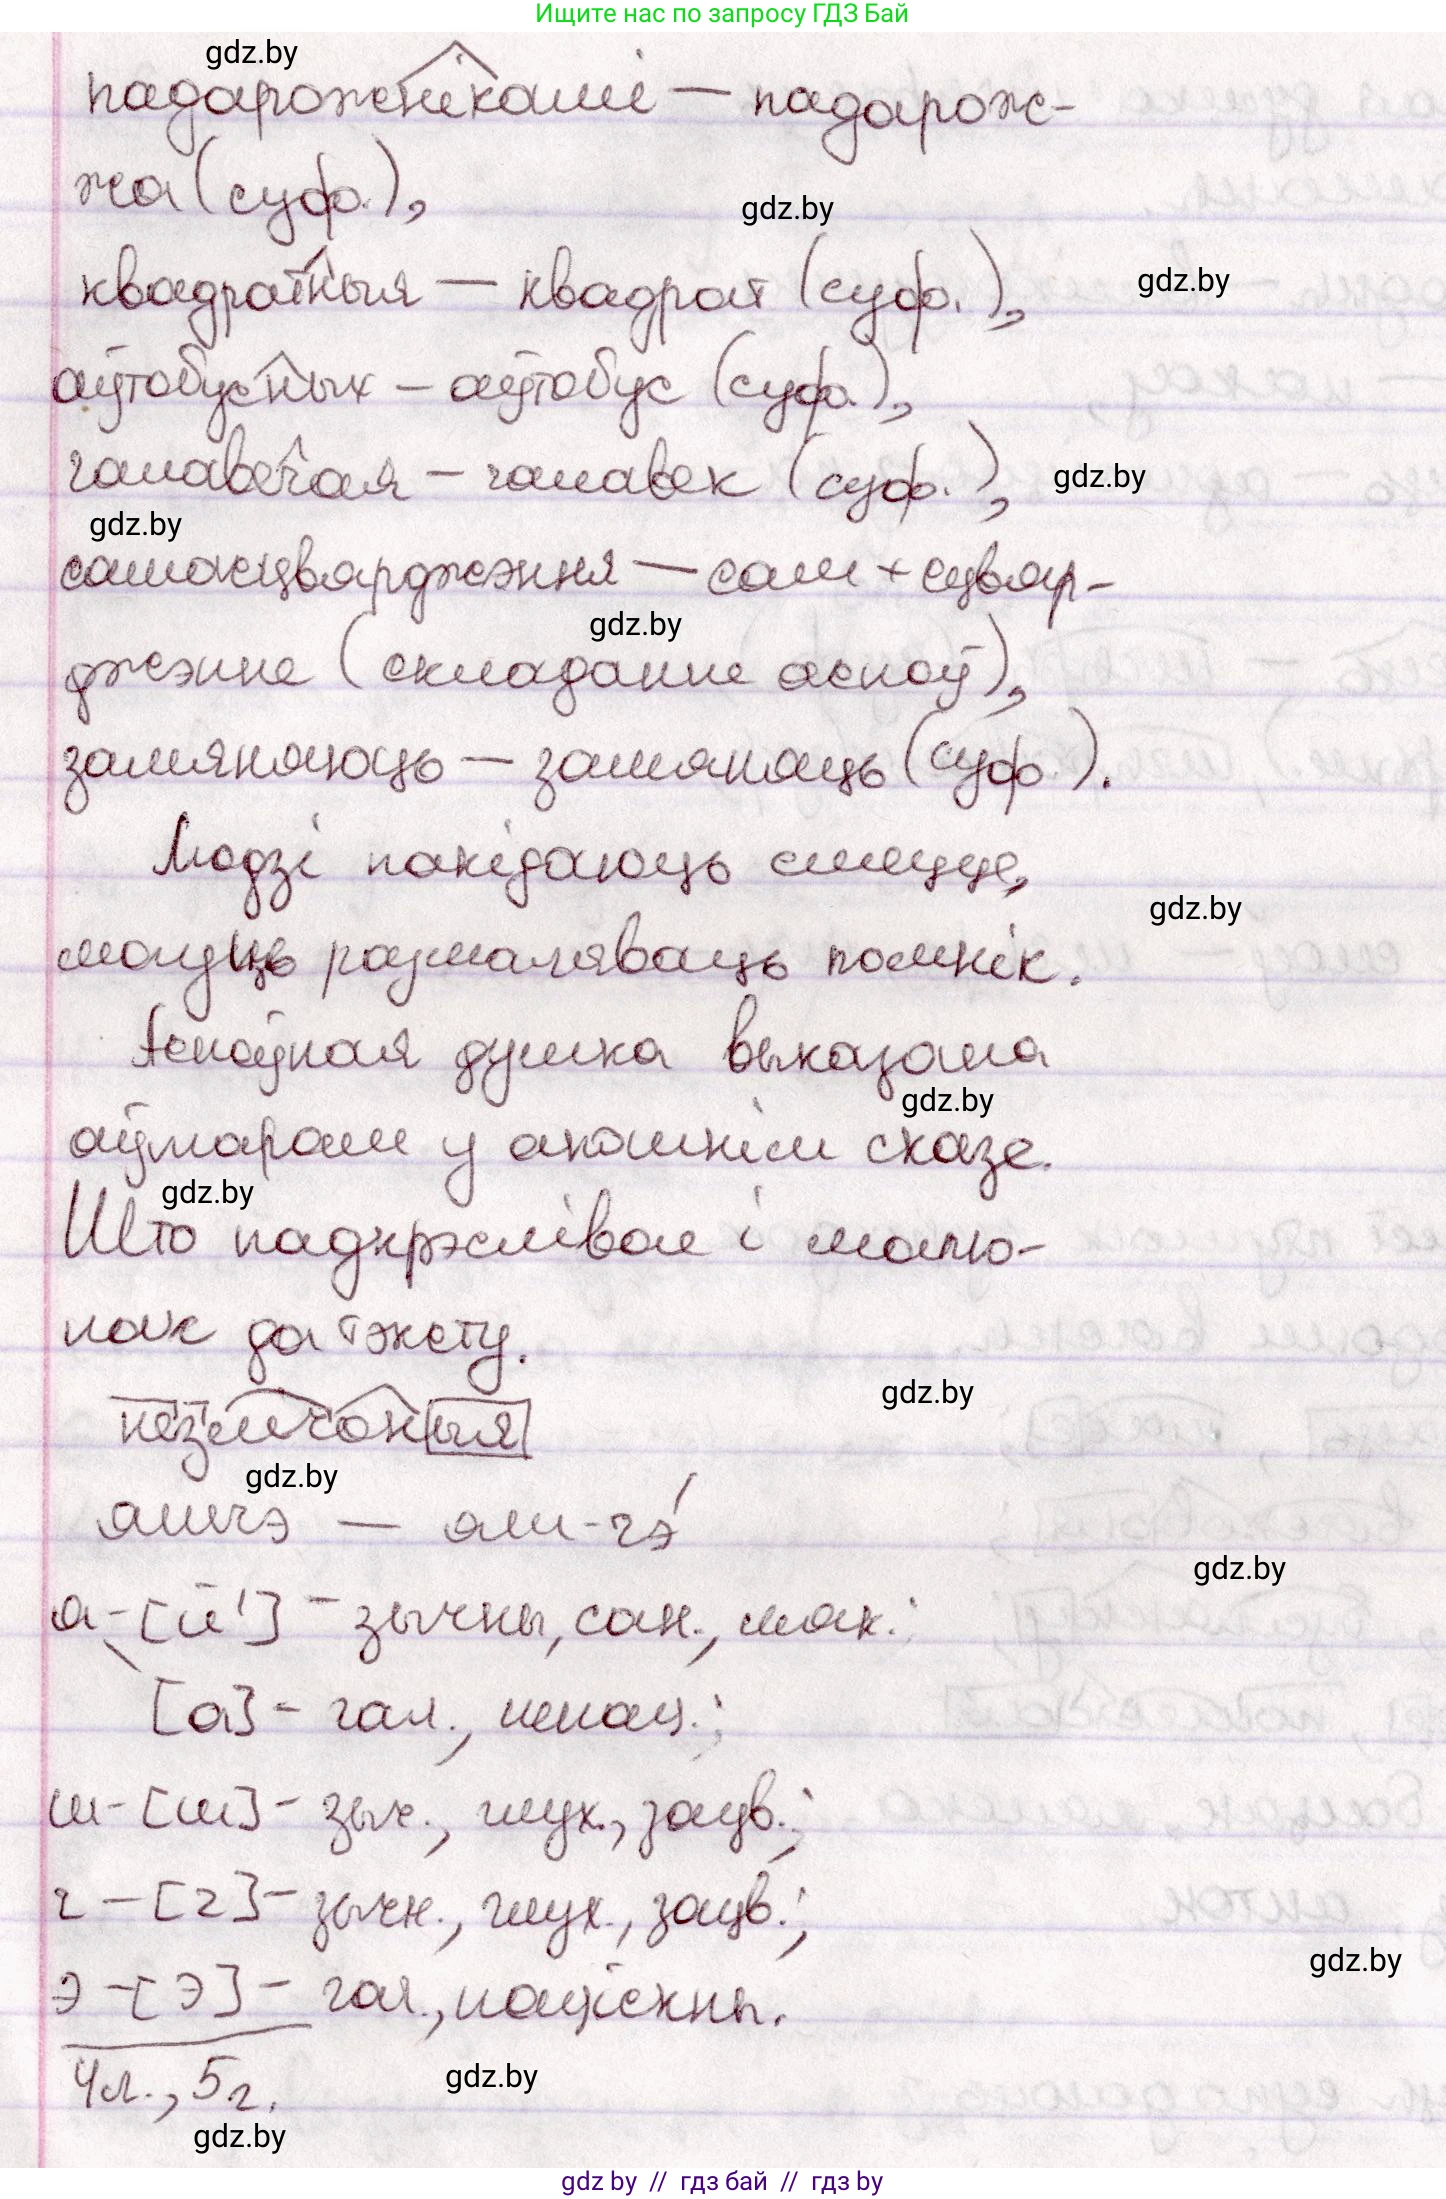 Ищите нас по запросу ГДЗ Бай
gdz.by
падарожнікамі — падарож-
жа (суф.),
gdz.by
квадратныя — квадрат (суф.),
gdz.by
аўтобусных — аўтобус (суф.),
чалавечая — чалавек (суф.),
gdz.by
gdz.by
самасцвярджэння — сам + сцвяр-
gdz.by
джэнне (складанне асноў),
замяняюць — замяняць (суф.).
Людзі пакідаюць смецце,
gdz.by
могуць размаляваць помнік.
Асноўная думка выказана
gdz.by
аўтарам у апошнім сказе.
gdz.by
Што падкрэслівае і малю-
нак да тэксту.
gdz.by
незлічоныя
gdz.by
яшчэ — яш-чэ́
gdz.by
я - [й'] - зычны, сан., мяк.;
[а] - гал., ненац.;
ш - [ш] - зыч., глух., зацв.;
ч - [ч] - зычн., глух., зацв.;
gdz.by
э - [э] - гал., націскны.
4 л., 5 г.
gdz.by
gdz.by
gdz by // гдз бай // гдз by